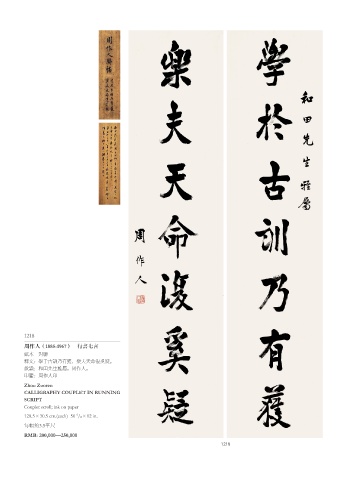 學於古訓乃有獲
和田先生雅屬
樂夫天命復奚疑
周作人
1218
周作人（1885-1967） 行書七言
紙本 對聯
釋文：學于古訓乃有獲，樂夫天命復奚疑。
款識：和田先生雅屬，周作人。
印鑑：周作人印
Zhou Zuoren
CALLIGRAPHY COUPLET IN RUNNING
SCRIPT
Couplet scroll, ink on paper
RMB: 200,000—250,000
1218